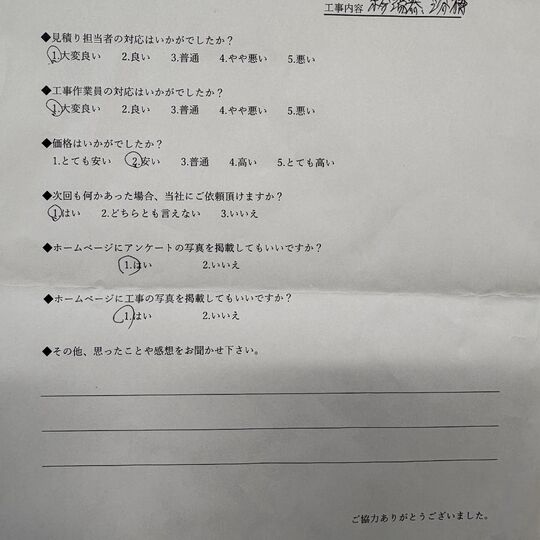 工事内容 給湯器、浴槽
◆見積り担当者の対応はいかがでしたか?
1.大変良い 2.良い 3.普通 4.やや悪い 5.悪い
◆工事作業員の対応はいかがでしたか?
1.大変良い 2.良い 3.普通 4.やや悪い 5.悪い
◆価格はいかがでしたか?
1.とても安い 2.安い 3.普通 4.高い 5.とても高い
◆次回も何かあった場合、当社にご依頼頂けますか?
1.はい 2.どちらとも言えない 3.いいえ
◆ホームページにアンケートの写真を掲載してもいいですか?
1.はい 2.いいえ
◆ホームページに工事の写真を掲載してもいいですか?
1.はい 2.いいえ
◆その他、思ったことや感想をお聞かせ下さい。
ご協力ありがとうございました。